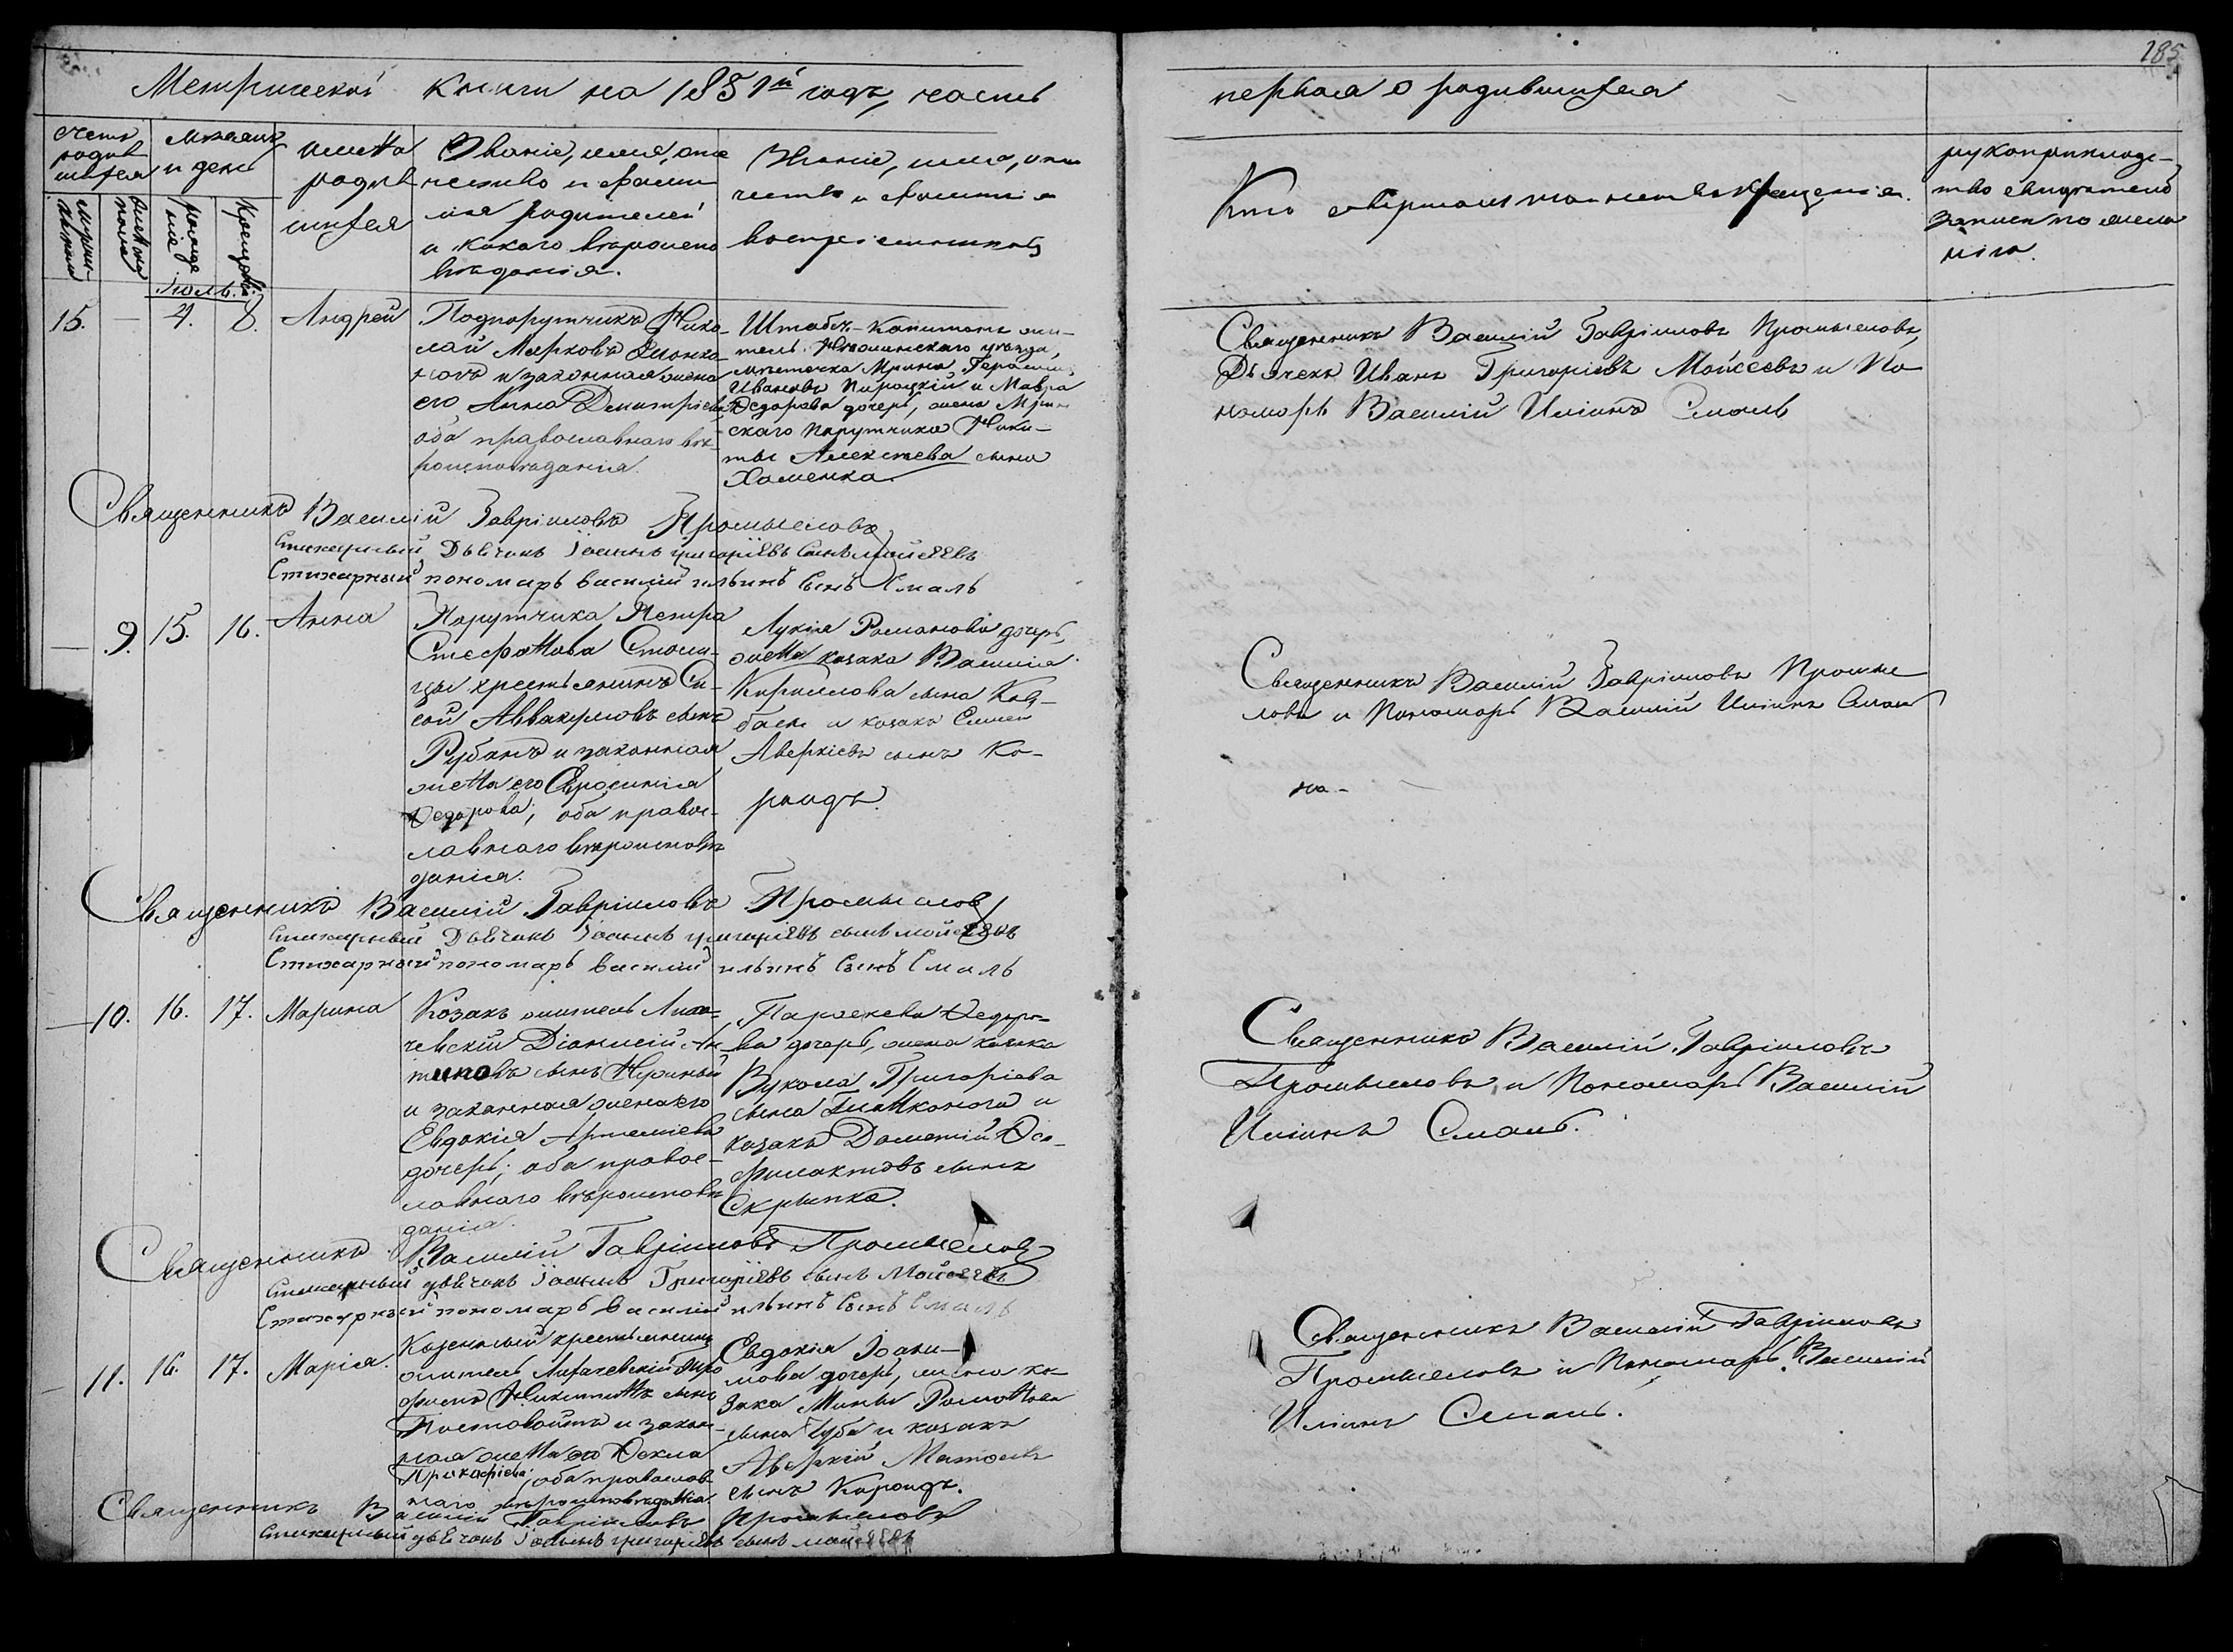 185
Метрической книги на 1851й годъ, часть
первая о родившихся
Счетъ родив шихся
Мужеска
женска пола
Мѣсяцъ и день
рожде ніе
Крещеніе
Имена
родив
шихся
Званіе, имя, оте
чество и фами
лія родителей
и какого вѣроиспо
вѣданія.
Званіе, имя, оте
чество и фамилія
воспріемниковъ
Кто совершалъ таинство крещенія.
рукоприкладс-
тво свидѣтелей
записи по жела
нію.
Іюль.
15. — 4. 8. Андрей
Подпорутчикъ Нико-
лай Марковъ
и законная жена
его Анна Димитріева
оба православнаго вѣ-
роисповѣданія.
Штабсъ-Капитанъ жи-
тель Нѣжинскаго уѣзда,
мѣстечка Мрина, Герасимъ
Ивановъ Пироцкій и Мавра
Ѳедорова дочерь, жена Мрин
скаго Порутчика Ники-
ты Алексѣева сына
Хоменка.
Священникъ Василій Гавріиловъ Промысловъ,
Дьячекъ Иванъ Григоріевъ Мойсеевъ и По
номарь Василій Иліинъ Смаль
Священникъ Василій Гавріиловъ Промысловъ
Стихарный Дьячокъ Іоаннъ григоріевъ сынъ мойсеевъ
Стихарный пономарь василій ильинъ сынъ Смаль
— 9. 15. 16. Анна
Порутчика Петра
Стефанова Столи-
цы крестьянинъ Си-
сой Аввакумовъ сынъ
Рубанъ и законная
жена его Евросинія
Ѳедорова; оба правос-
лавнаго вѣроисповѣ
данія.
Лукія Романова дочерь,
жена казака Василія
Кирилова сына Ков-
баси и козакъ Емели
Аверкіевъ сынъ Ко-
роидъ.
Священникъ Василій Гавріиловъ Промыс
ловъ и Пономарь Василій Иліинъ Смаль
Священникъ Василій Гавріиловъ Промысловъ
Стихарный Дьячокъ Іоаннъ григоріевъ сынъ мойсеевъ
Стихарный пономарь василій ильинъ сынъ Смаль
— 10. 16. 17. Марина
Козакъ житель Лиха-
чевскій Діонисій Ан-
типовъ сынъ
и законная жена его
Евдокія Артеміева
дочерь; оба правос-
лавнаго вѣроисповѣ
данія.
Параскева Ѳедоро-
ва дочерь, жена козака
Вукола Григоріева
сына и
козакъ Дометій Ѳео-
филактовъ сынъ
Скрыпка.
Священникъ Василій Гавріиловъ
Промысловъ и Пономарь Василій
Иліинъ Смаль.
Священникъ Василій Гавріиловъ Промысловъ
Стихарный дьячокъ Іоаннъ Григоріевъ сынъ Мойсеевъ
Стихарный пономарь василій ильинъ сынъ Смаль
— 11. 16. 17. Марія.
Казенный крестьянинъ
житель Лихачевскій Тро
фимъ Никитинъ сынъ
и закон-
ная жена его Ѳекла
оба православ
наго вѣроисповѣданія.
Евдокія Іоаки-
мова дочерь, жена ко-
зака Мины Романова
сына Зуба и козакъ
Аверкій сынъ Короидъ.
Священникъ Василій Гавріиловъ
Промысловъ и Пономарь Василій
Иліинъ Смаль.
Священникъ Василій Гавріиловъ Промысловъ
Стихарный дьячокъ Іоаннъ григоріевъ сынъ мойсеевъ